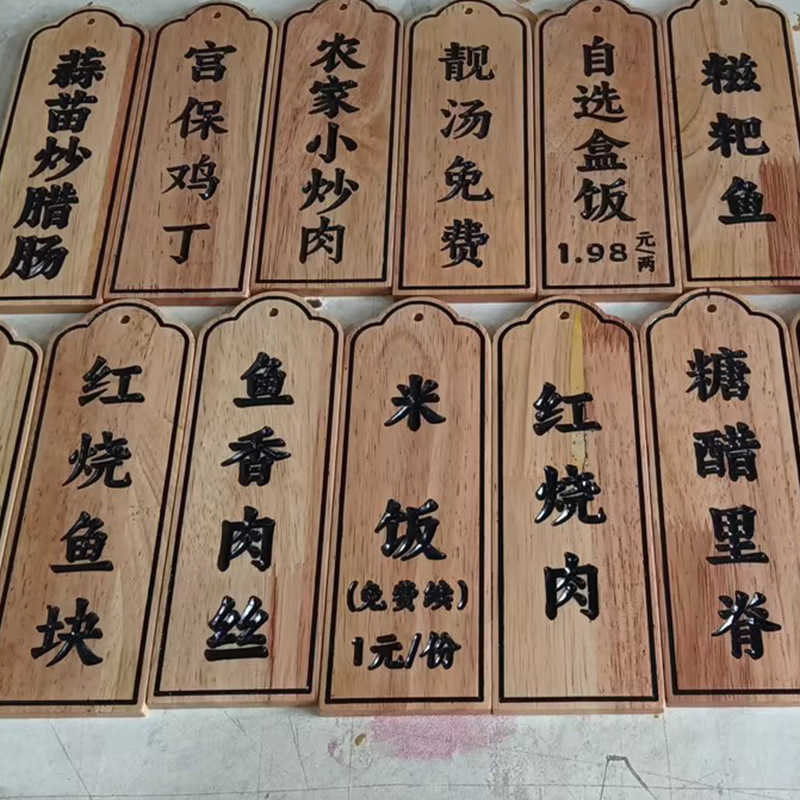 蒜苗炒腊肠
宫保鸡丁
农家小炒肉
靓汤免费
自选盒饭
1.98元/两
糍粑鱼
红烧鱼块
鱼香肉丝
米饭
(免费续)
1元/份
红烧肉
糖醋里脊